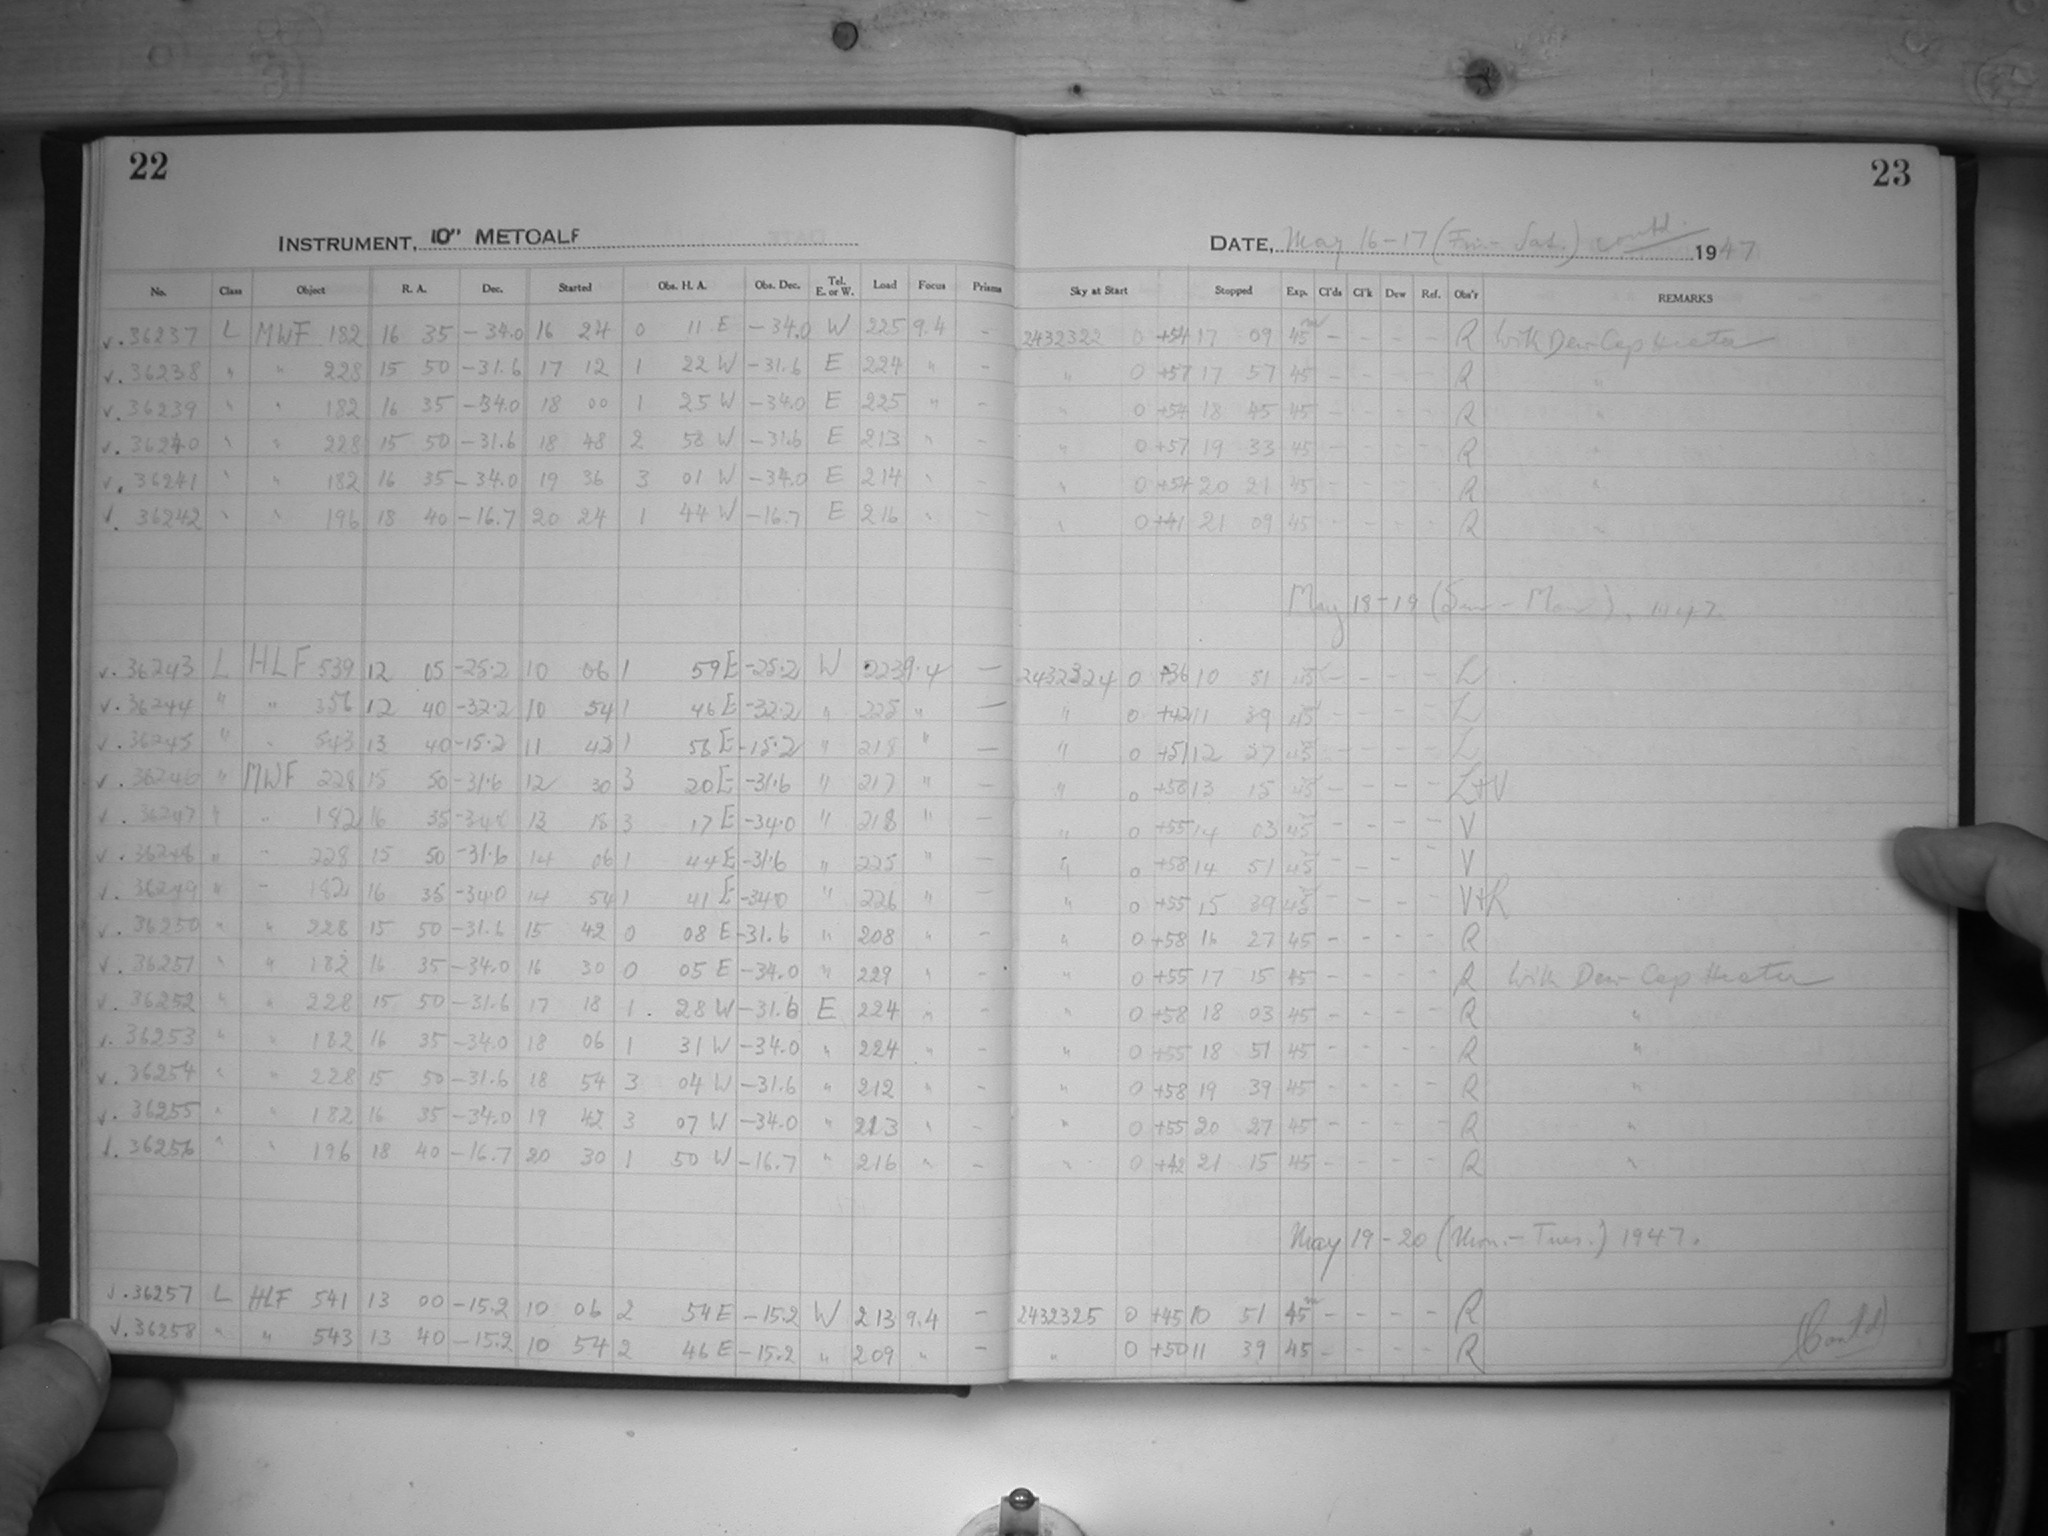 22
23
INSTRUMENT, 10" METCALF
DATE, May 16-17 (Fri.- Sat.) contd. 1947
No. Class Object R. A. Dec. Started Obs. H. A. Obs. Dec. Tel. E. or W. Load Focus Prisms Sky at Start Stopped Exp. Cl'ds Cl'k Dew Ref. Obs'r REMARKS
v. 36237 L MWF 182 16 35 -34.0 16 24 0 11 E -34.0 W 225 9.4 - 2432322 0 +54 17 09 45m - - - - R With Dew Cap Heater
v. 36238 " " 228 15 50 -31.6 17 12 1 22 W -31.6 E 224 " - " 0 +57 17 57 45 - - - - R "
v. 36239 " " 182 16 35 -34.0 18 00 1 25 W -34.0 E 225 " - " 0 +54 18 45 45 - - - - R "
v. 36240 " " 228 15 50 -31.6 18 48 2 58 W -31.6 E 213 " - " 0 +57 19 33 45 - - - - R "
v. 36241 " " 182 16 35 -34.0 19 36 3 01 W -34.0 E 214 " - " 0 +54 20 21 45 - - - - R "
v. 36242 " " 196 18 40 -16.7 20 24 1 44 W -16.7 E 216 " - " 0 +41 21 09 45 - - - - R "
May 18-19 (Sun - Mon), 1947.
v. 36243 L HLF 539 12 05 -25.2 10 06 1 59 E -25.2 W 223 9.4 - 2432324 0 +36 10 51 45 - - - - L
v. 36244 " " 356 12 40 -32.2 10 54 1 46 E -32.2 " 225 " - " 0 +42 11 39 45 - - - - L
v. 36245 " " 543 13 40 -15.2 11 42 1 56 E -15.2 " 218 " - " 0 +51 12 27 45 - - - - L
v. 36246 " MWF 228 15 50 -31.6 12 30 3 20 E -31.6 " 217 " - " 0 +58 13 15 45 - - - - L+V
v. 36247 " " 182 16 35 -34.0 13 18 3 17 E -34.0 " 218 " - " 0 +55 14 03 45 - - - - V
v. 36248 " " 228 15 50 -31.6 14 06 1 44 E -31.6 " 225 " - " 0 +58 14 51 45 - - - - V
v. 36249 " " 182 16 35 -34.0 14 54 1 41 E -34.0 " 226 " - " 0 +55 15 39 45 - - - - V+R
v. 36250 " " 228 15 50 -31.6 15 42 0 08 E -31.6 " 208 " - " 0 +58 16 27 45 - - - - R
v. 36251 " " 182 16 35 -34.0 16 30 0 05 E -34.0 " 229 " - " 0 +55 17 15 45 - - - - R With Dew Cap Heater
v. 36252 " " 228 15 50 -31.6 17 18 1 28 W -31.6 E 224 " - " 0 +58 18 03 45 - - - - R "
v. 36253 " " 182 16 35 -34.0 18 06 1 31 W -34.0 " 224 " - " 0 +55 18 51 45 - - - - R "
v. 36254 " " 228 15 50 -31.6 18 54 3 04 W -31.6 " 212 " - " 0 +58 19 39 45 - - - - R "
v. 36255 " " 182 16 35 -34.0 19 42 3 07 W -34.0 " 213 " - " 0 +55 20 27 45 - - - - R "
v. 36256 " " 196 18 40 -16.7 20 30 1 50 W -16.7 " 216 " - " 0 +42 21 15 45 - - - - R "
May 19-20 (Mon.- Tues.) 1947.
v. 36257 L HLF 541 13 00 -15.2 10 06 2 54 E -15.2 W 213 9.4 - 2432325 0 +45 10 51 45m - - - - R
v. 36258 " " 543 13 40 -15.2 10 54 2 46 E -15.2 " 209 " - " 0 +50 11 39 45 - - - - R
(Contd)